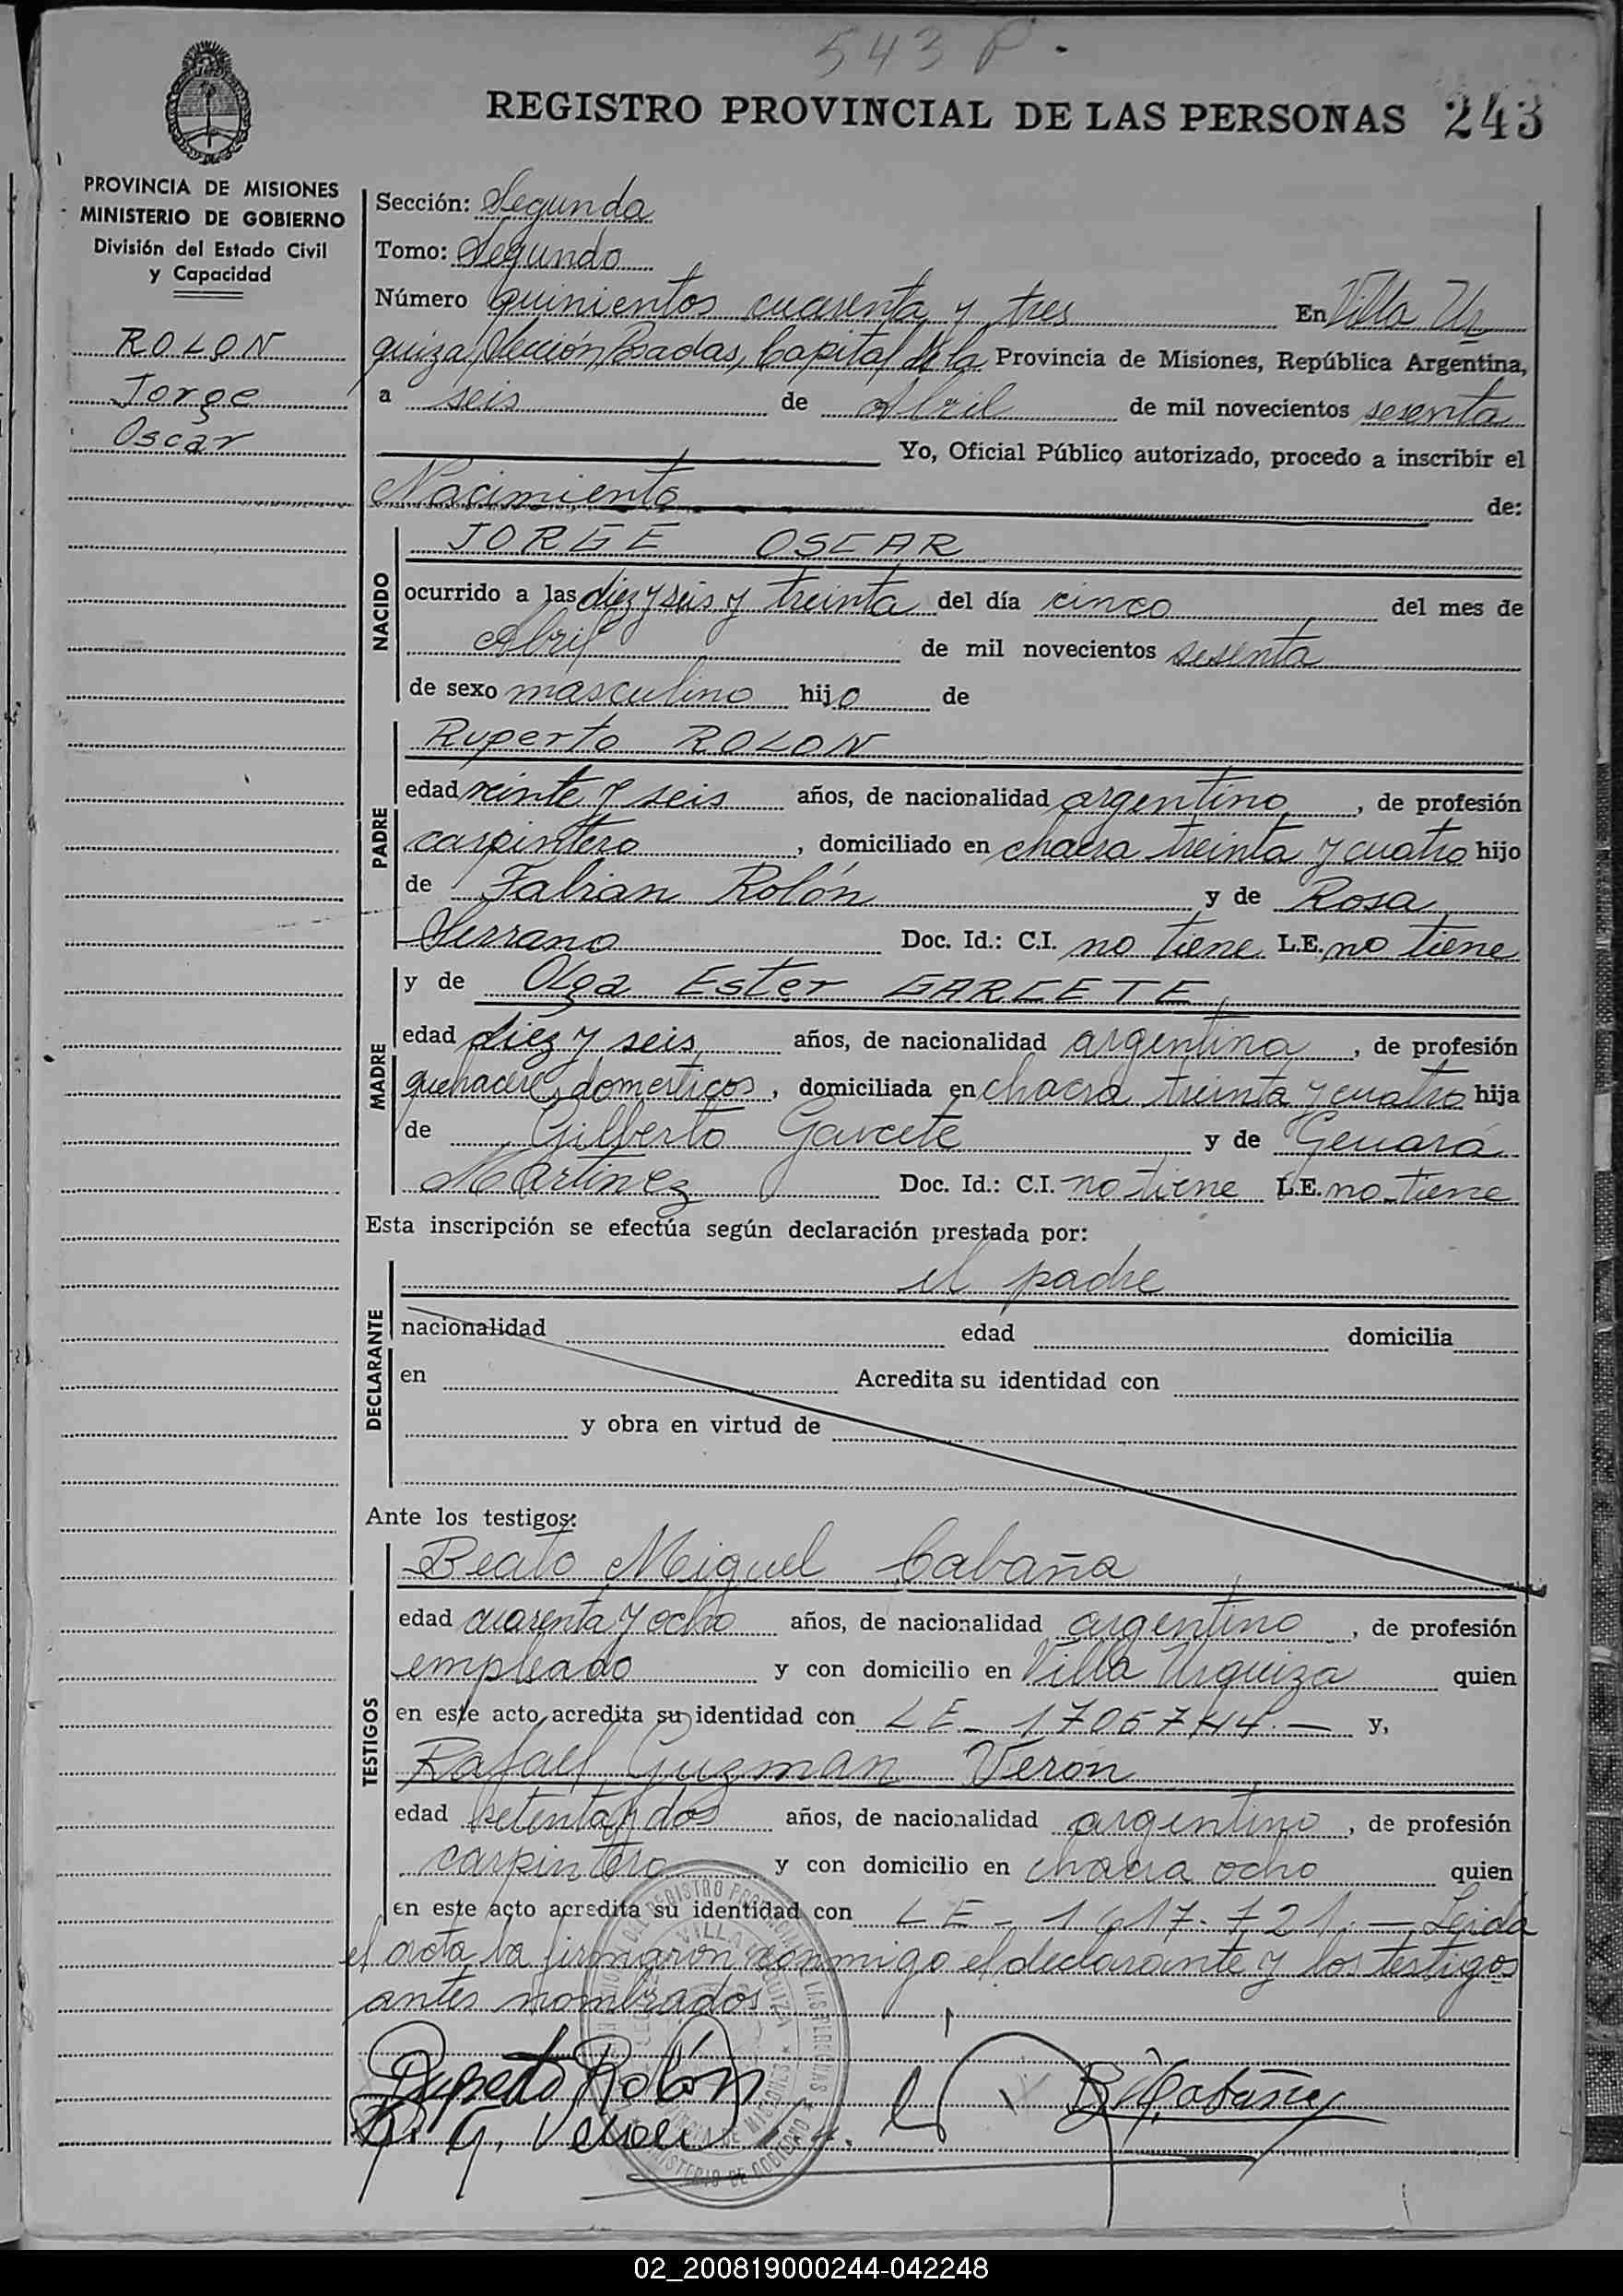 543 P.
REGISTRO PROVINCIAL DE LAS PERSONAS 243
PROVINCIA DE MISIONES
MINISTERIO DE GOBIERNO
División del Estado Civil
y Capacidad
ROLON
Jorge
Oscar
Sección: Segunda
Tomo: Segundo
Número quinientos cuarenta y tres En Villa Ur
quiza Sección Posadas, Capital de la Provincia de Misiones, República Argentina,
a seis de Abril de mil novecientos sesenta
Yo, Oficial Público autorizado, procedo a inscribir el
Nacimiento de:
NACIDO
JORGE OSCAR
ocurrido a las diez y seis y treinta del día cinco del mes de
Abril de mil novecientos sesenta
de sexo masculino hijo de
PADRE
Ruperto ROLON
edad veinte y seis años, de nacionalidad argentino, de profesión
carpintero, domiciliado en chacra treinta y cuatro hijo
de Fabian Rolón y de Rosa
Serrano Doc. Id.: C.I. no tiene L.E. no tiene
MADRE
y de Olga Ester GARCETE
edad diez y seis años, de nacionalidad argentina, de profesión
quehaceres domesticos, domiciliada en chacra treinta y cuatro hija
de Gilberto Garcete y de Genara
Martinez Doc. Id.: C.I. no tiene L.E. no tiene
Esta inscripción se efectúa según declaración prestada por:
DECLARANTE
el padre
nacionalidad edad domicilia
en Acredita su identidad con
y obra en virtud de
Ante los testigos:
TESTIGOS
Beato Miguel Cabaña
edad cuarenta y ocho años, de nacionalidad argentino, de profesión
empleado y con domicilio en Villa Urquiza quien
en este acto acredita su identidad con LE- 1705744.— y,
Rafael Guzman Verón
edad setenta y dos años, de nacionalidad argentino, de profesión
carpintero y con domicilio en chacra ocho quien
en este acto acredita su identidad con LE- 1617.721.— Leida
el acta, la firmaron conmigo el declarante y los testigos
antes nombrados
Ruperto Rolón
R. G. Veron
B. M. Cabaña
02_200819000244-042248